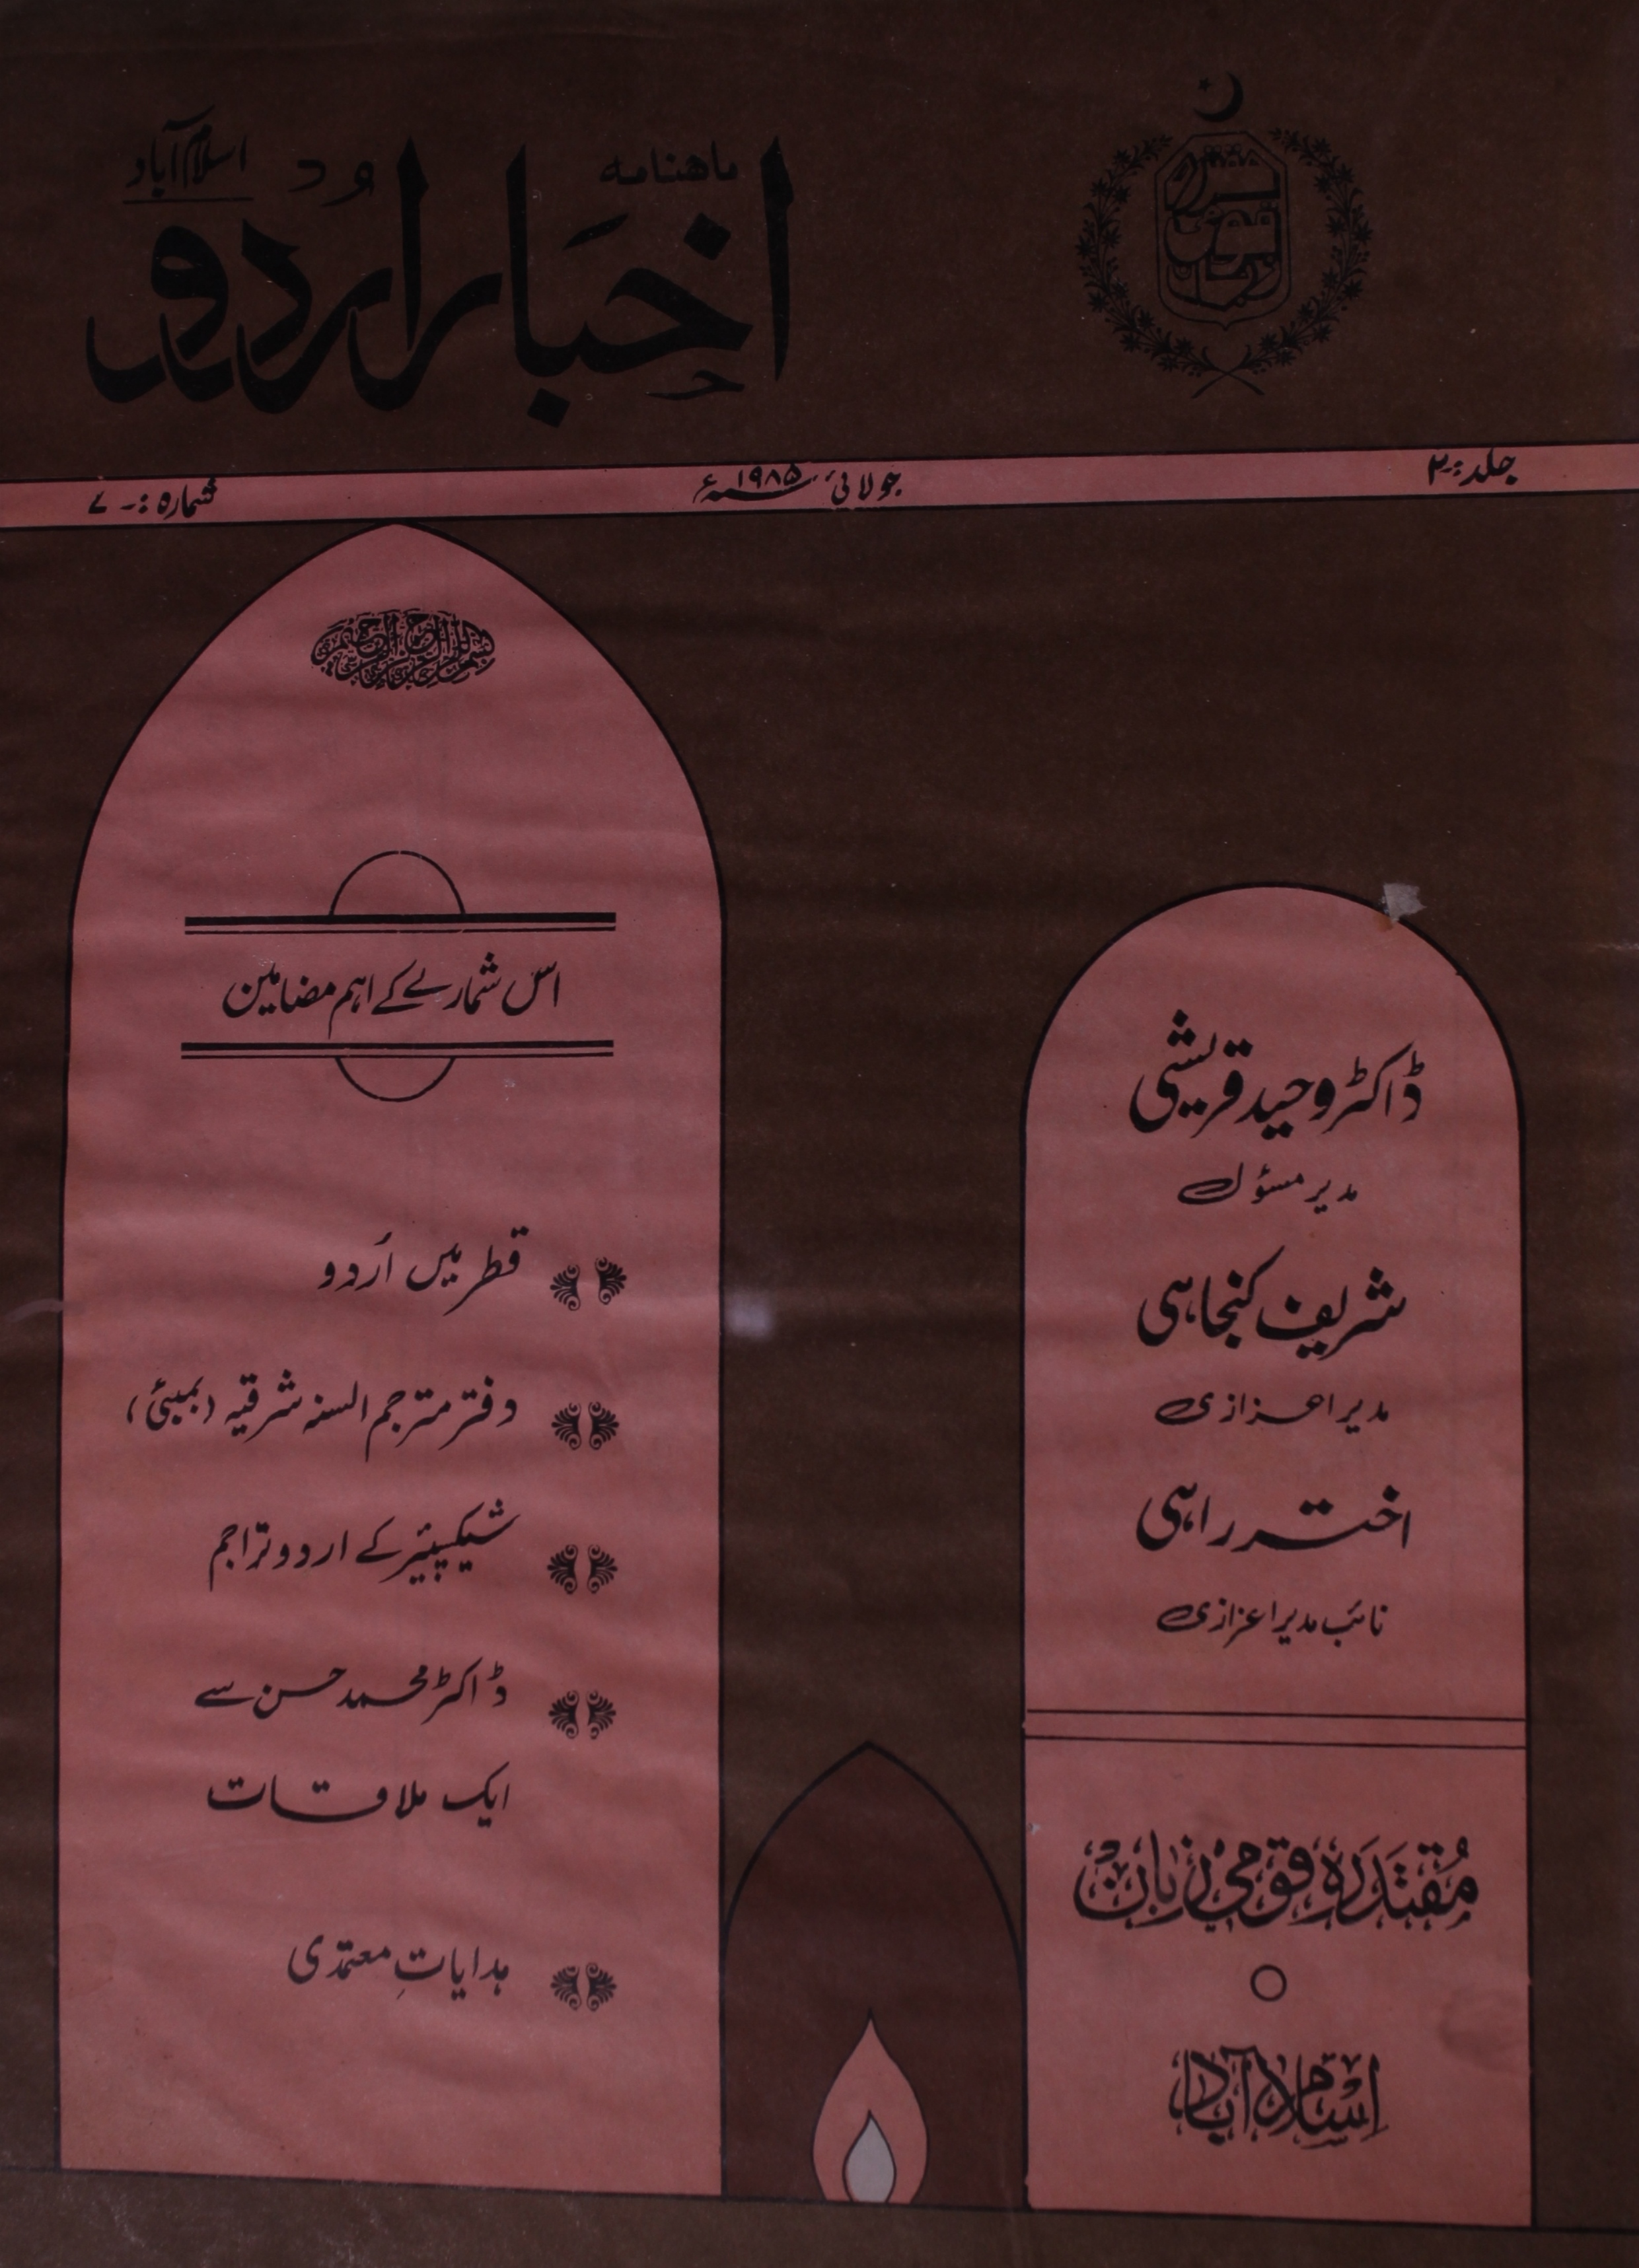 ماهنامه
اخبار اُردو
اسلام آباد
مقتدره قومی زبان
جلد:۔ ۲
جولائی ۱۹۸۵ء
شمارہ:۔ ۷
بسم اللہ الرحمن الرحیم
اس شمارے کے اہم مضامین
قطر میں اُردو
دفتر مترجم السنہ شرقیہ (بمبئی)
شیکسپیئر کے اردو تراجم
ڈاکٹر محمد حسن سے
ایک ملاقات
ہدایاتِ معتمدی
ڈاکٹر وحید قریشی
مدیر مسؤل
شریف کنجاہی
مدیر اعزازی
اختر راہی
نائب مدیر اعزازی
مُقتَدَرَہ قومی زبان
اسلام آباد